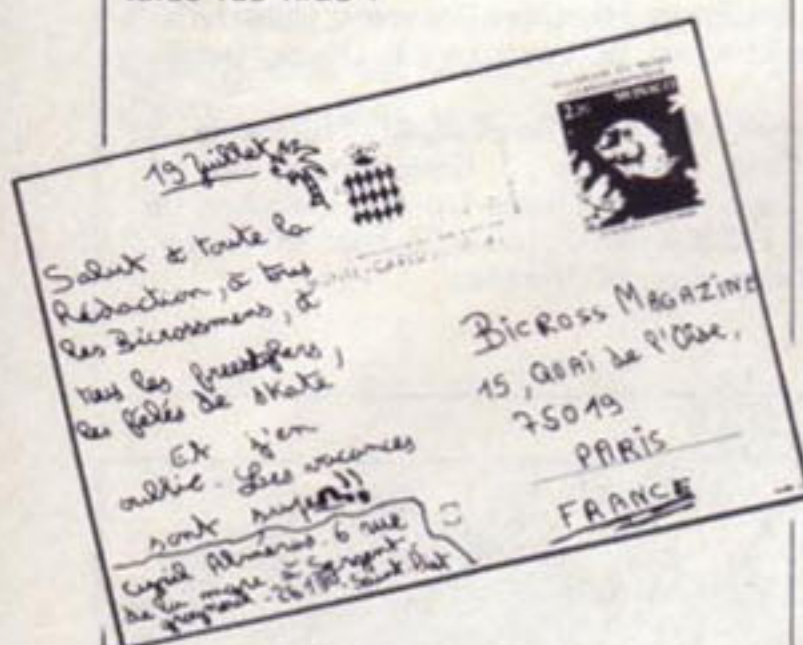 19 Juillet
MONACO
Salut à toute la
Rédaction, à tous
les Bicrossmens, à
tous les freestylers,
les fêlés de skate
Et j'en
oublie. Les vacances
sont super!!
Cyril Alméras. 6 rue
de la mare à Sergent.
Saint Piat
BICROSS MAGAZINE
15, QUAi de l'Oise,
75019
PARIS
FRANCE